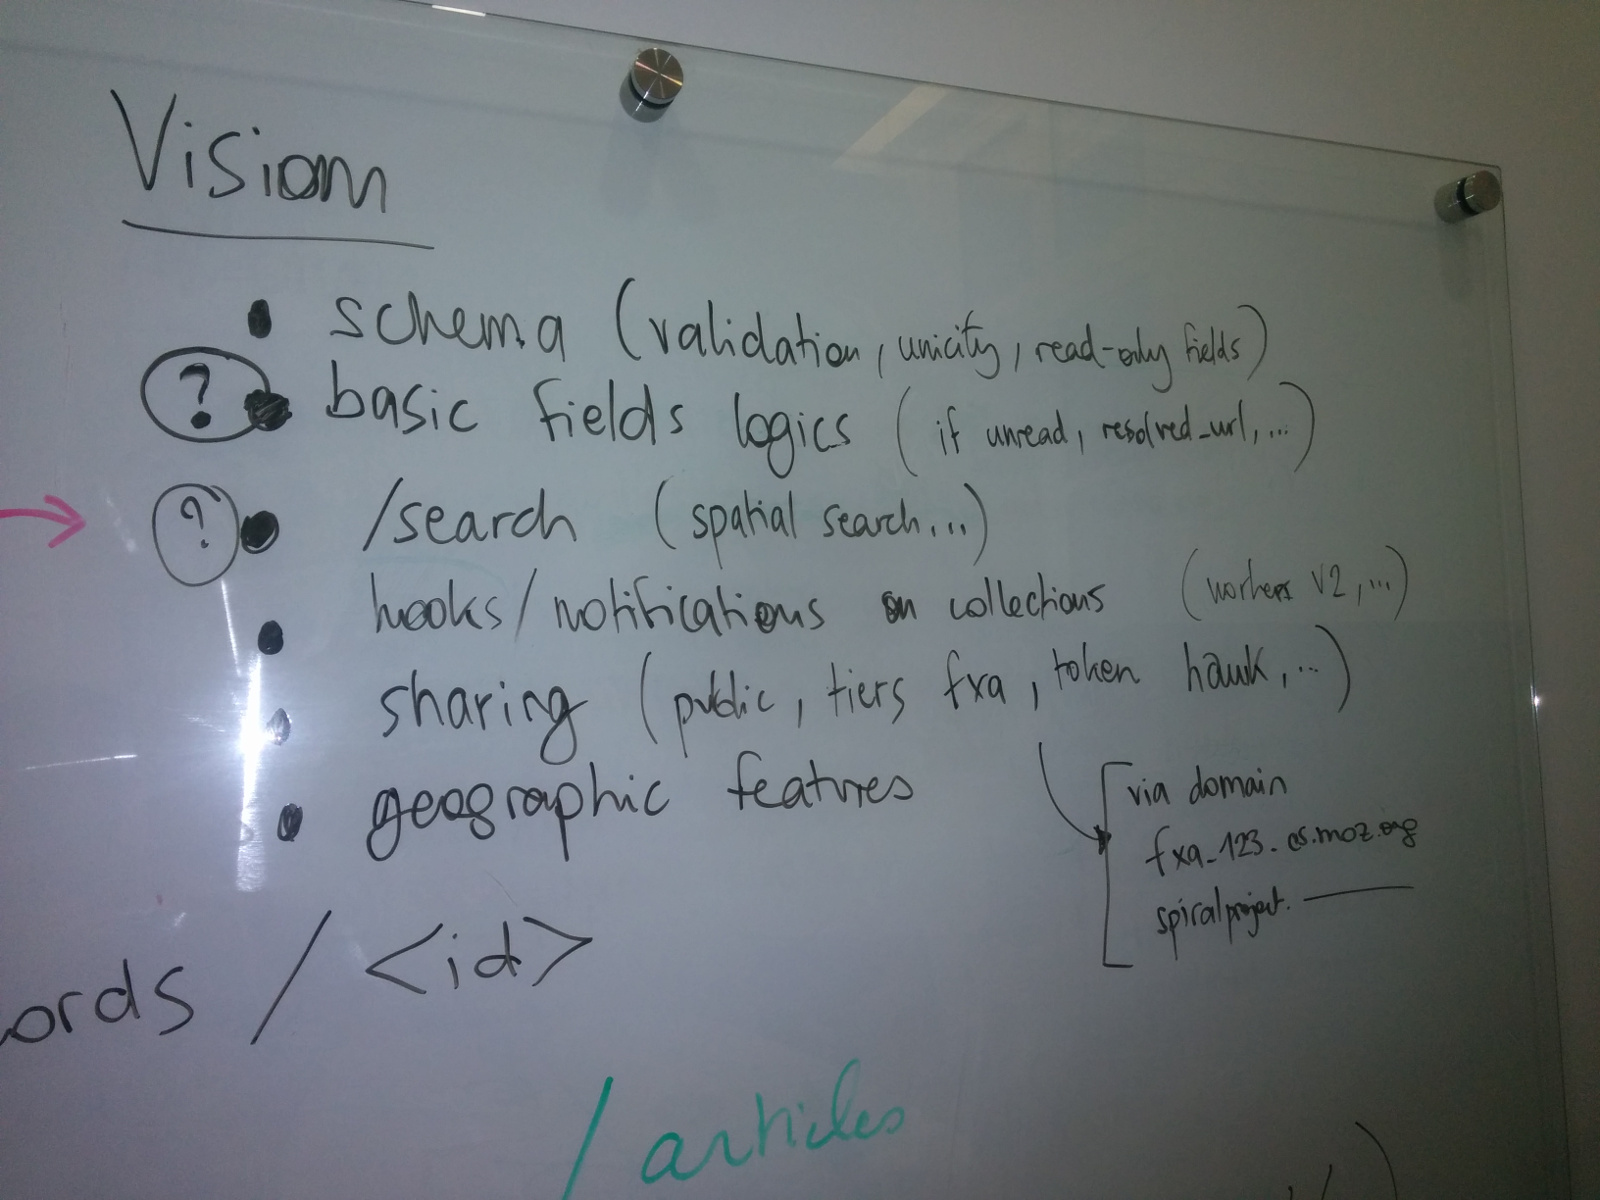 Vision
• schema (validation, unicity, read-only fields)
? • basic fields logics (if unread, resolved_url, ...)
? • /search (spatial search...)
• hooks/notifications on collections (workers V2, ...)
• sharing (public, tiers fxa, token hawk, ...)
• geographic features
via domain
fxa_123.cs.moz.org
spiralproject.
ords / <id>
/articles